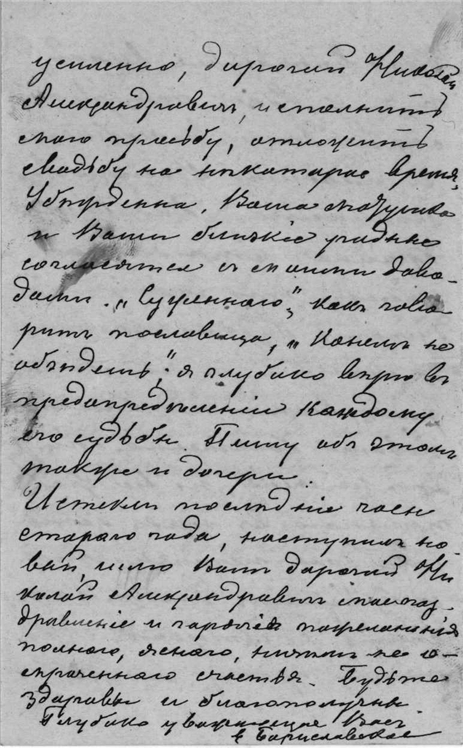 усиленно, дорогой Николай
Александрович, исполнить
мою просьбу, отложить
свадьбу на нѣкоторое время,
Убѣжденна, Ваша матушка
и Ваши близкіе родные
согласятся съ моими дово-
дами. „Суженнаго", какъ гово-
ритъ пословица, „конемъ не
объѣдешь", я глубоко вѣрю въ
предопредѣленіи каждому
его судьбы. Пишу объ этомъ
также и дочери.
Истекли послѣдніе часы
стараго года, наступилъ но-
вый, шлю Вамъ дорогой Ни-
колай Александровичъ мое поз-
дравленіе и горячія пожеланія
полнаго, яснаго, ничѣмъ не о-
мраченнаго счастья. Будьте
здоровы и благополучны.
Глубоко уважающая Васъ
Е Бориславская